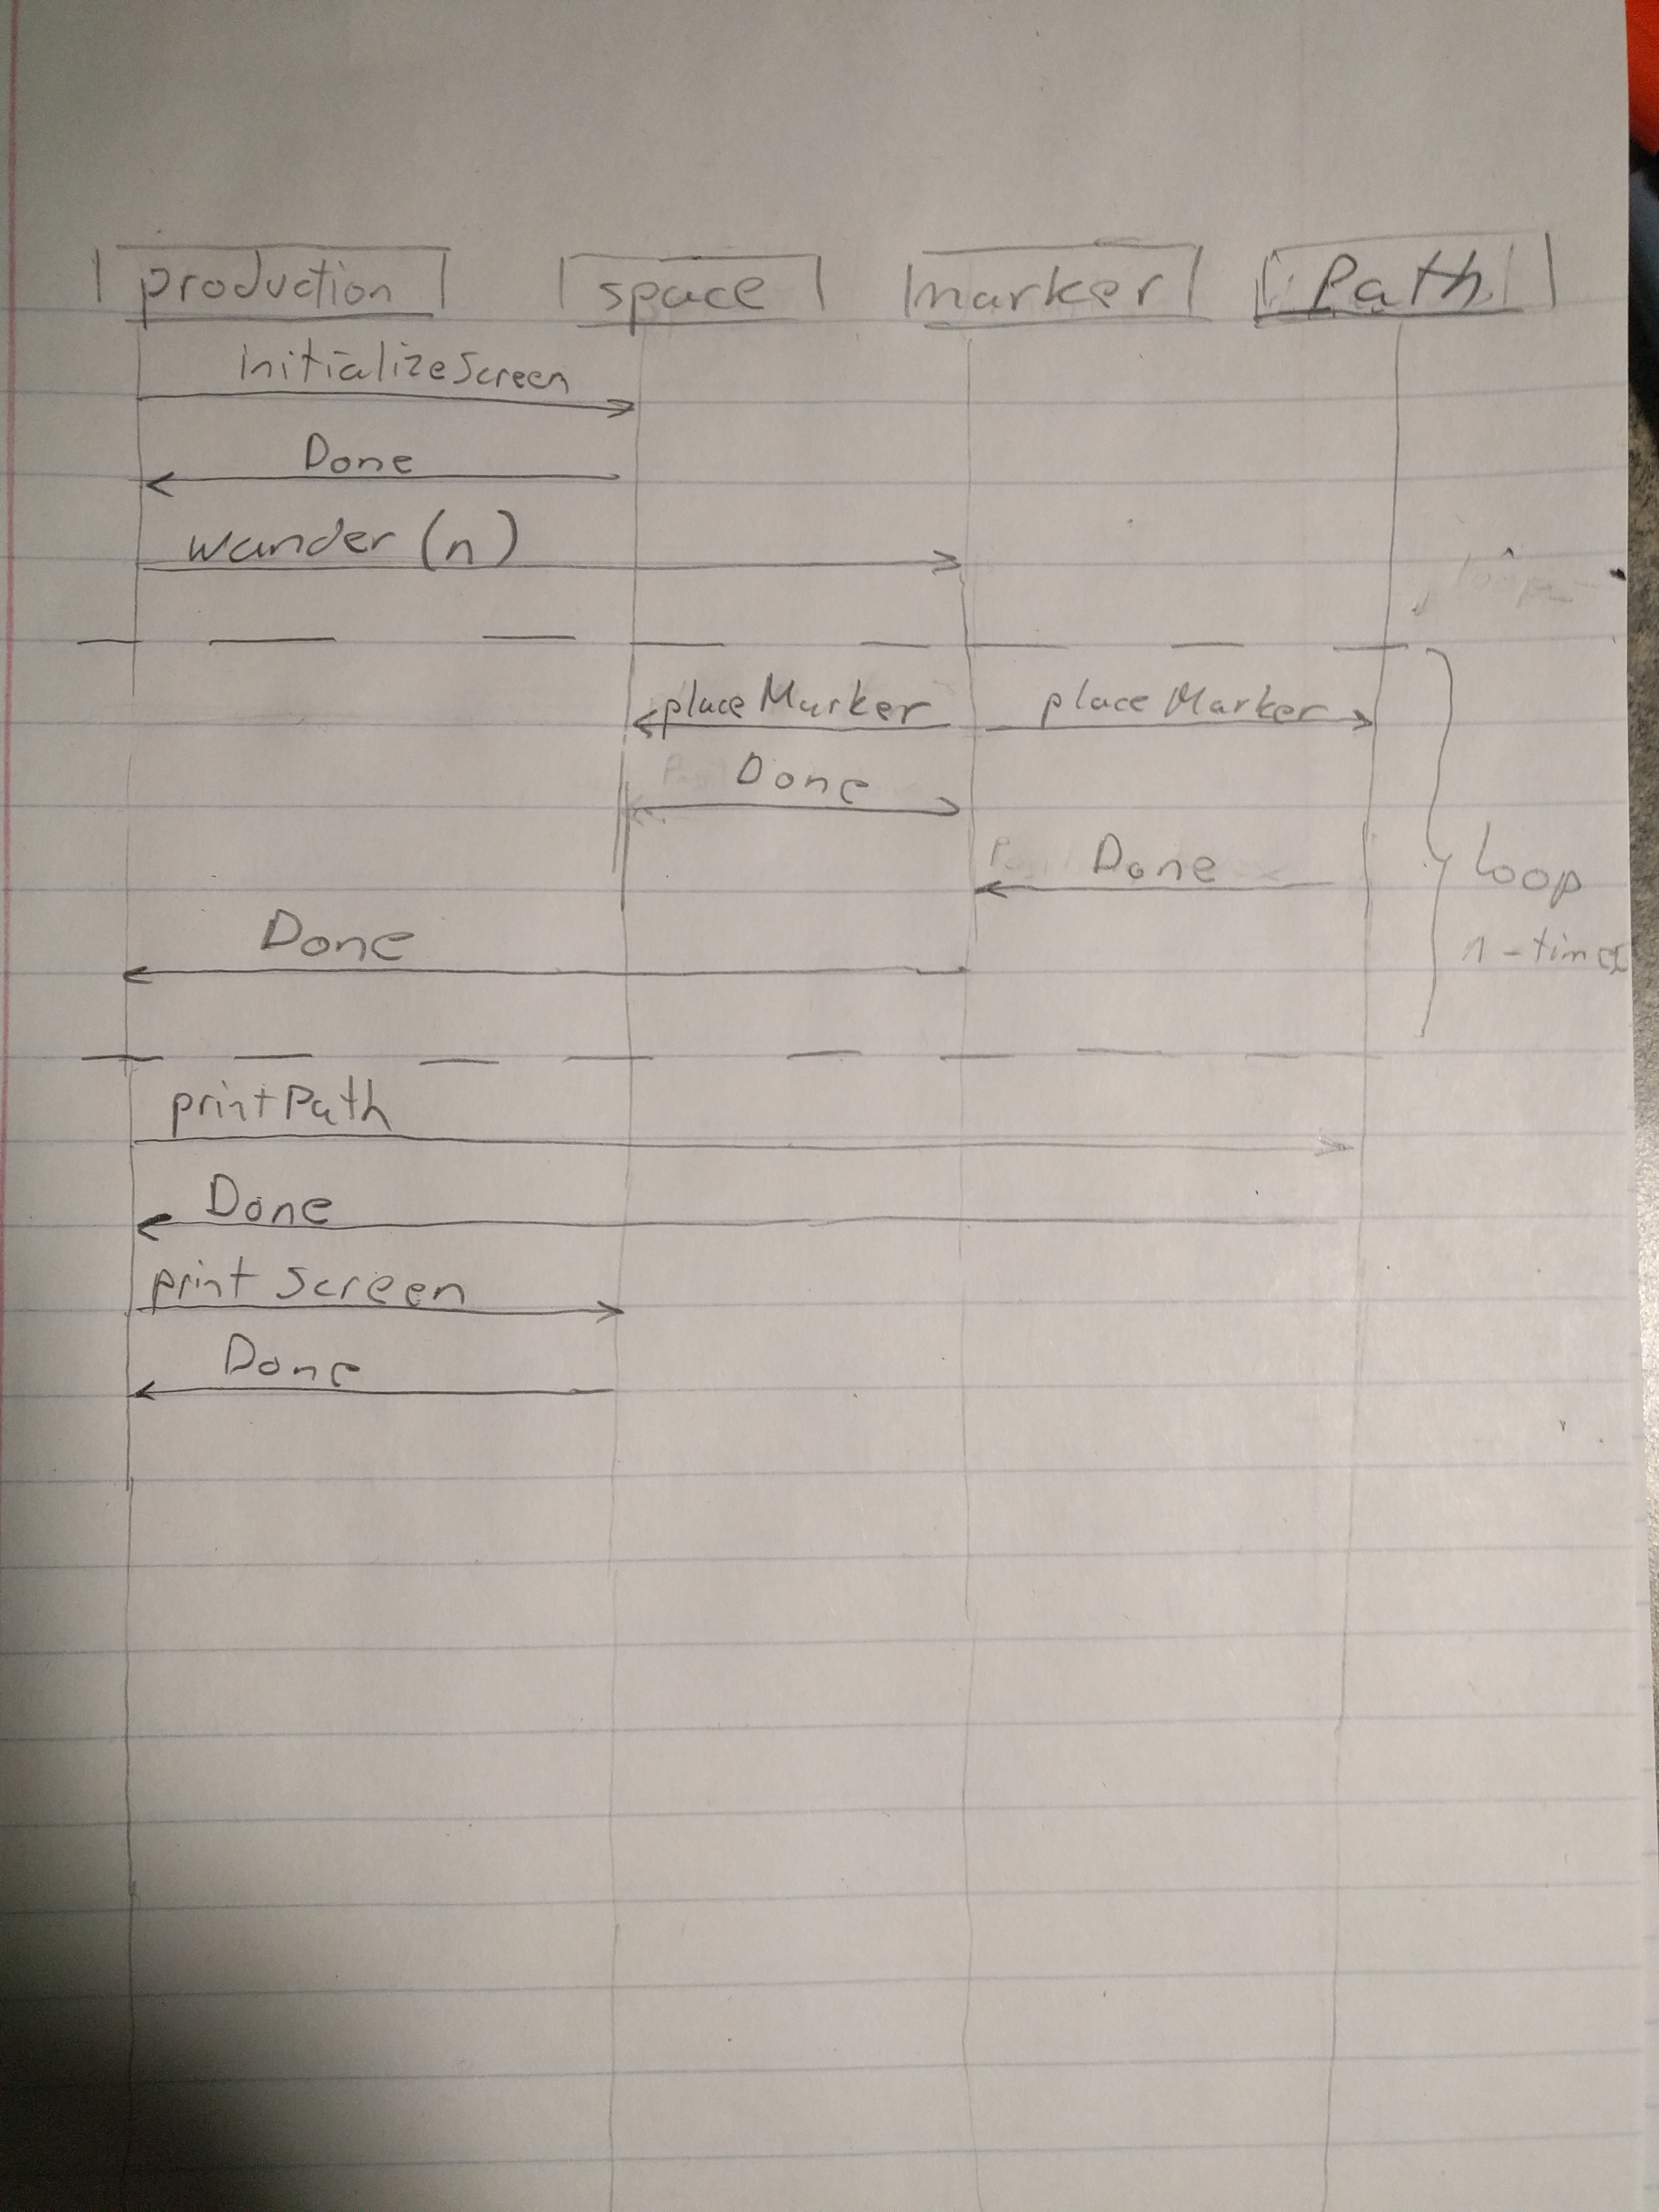 production space marker Path
initializeScreen
Done
wander (n)
placeMarker placeMarker
Done
Done
Loop
n-times
Done
printPath
Done
print Screen
Done